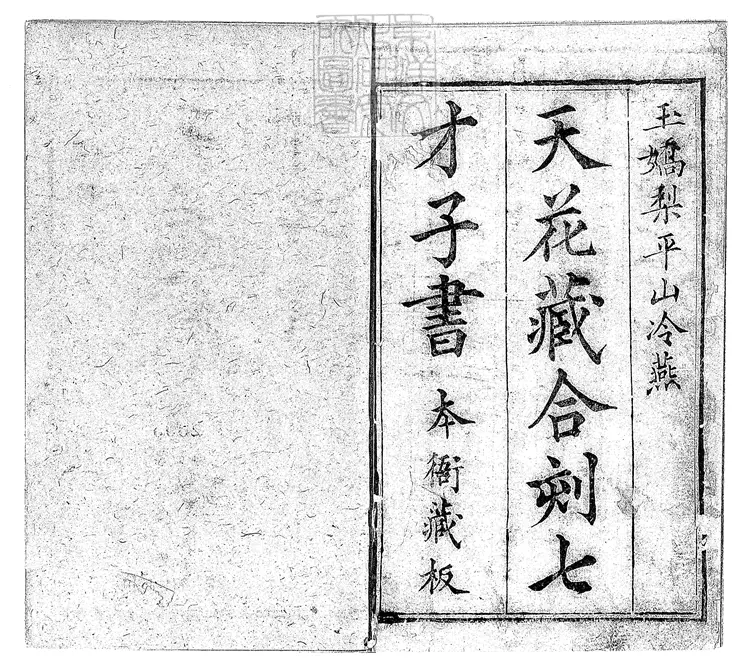 玉嬌梨平山冷燕
天花藏合刻七
才子書
本衙藏板